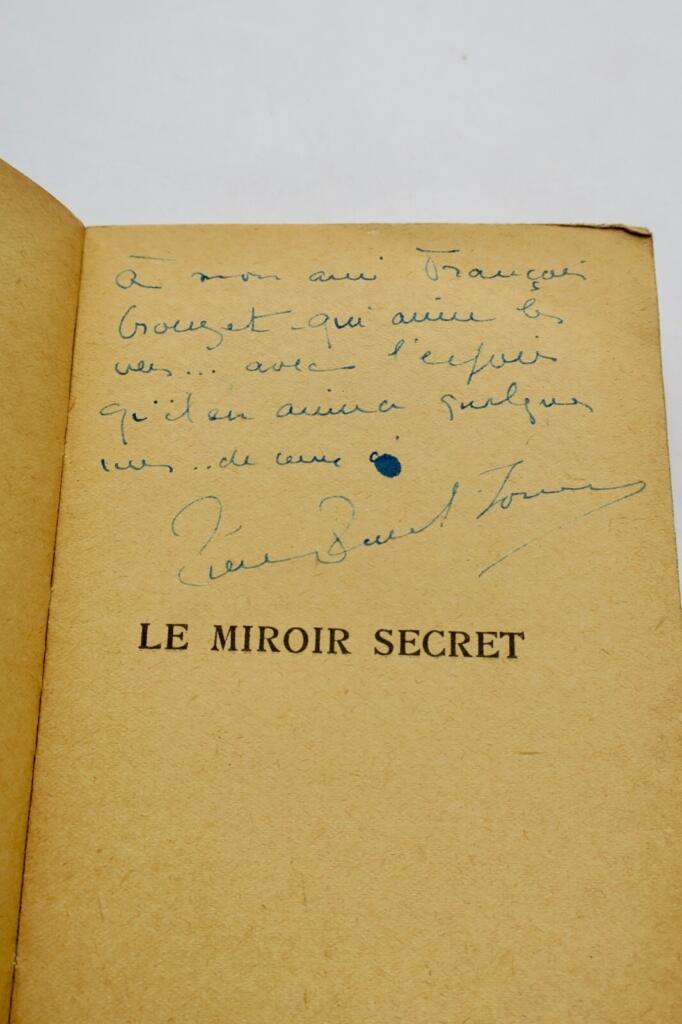 à mon ami François
Crouzet qui aime les
vers... avec l'espoir
qu'il en aimera quelques
uns... de ceux ci
Pierre
LE MIROIR SECRET